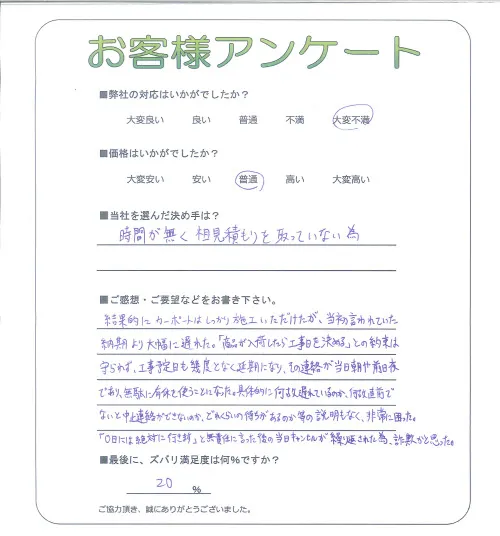 お客様アンケート
■弊社の対応はいかがでしたか？
大変良い 良い 普通 不満 大変不満
■価格はいかがでしたか？
大変安い 安い 普通 高い 大変高い
■当社を選んだ決め手は？
時間が無く相見積もりを取っていない為
■ご感想・ご要望などをお書き下さい。
結果的にカーポートはしっかり施工いただけたが、当初言われていた
納期より大幅に遅れた。「商品が入荷したら工事日を決める」との約束は
守られず、工事予定日も幾度となく延期になり、その連絡が当日朝や前日夜
であり、無駄に有休を使うことになった。具体的に何故遅れているのか、何故直前で
ないと中止連絡ができないのか、どれくらいの待ちがあるのか等の説明もなく、非常に困った。
「〇日には絶対に行きます」と無責任に言った後の当日キャンセルが繰り返された為、詐欺かと思った。
■最後に、ズバリ満足度は何％ですか？
20 %
ご協力頂き、誠にありがとうございました。